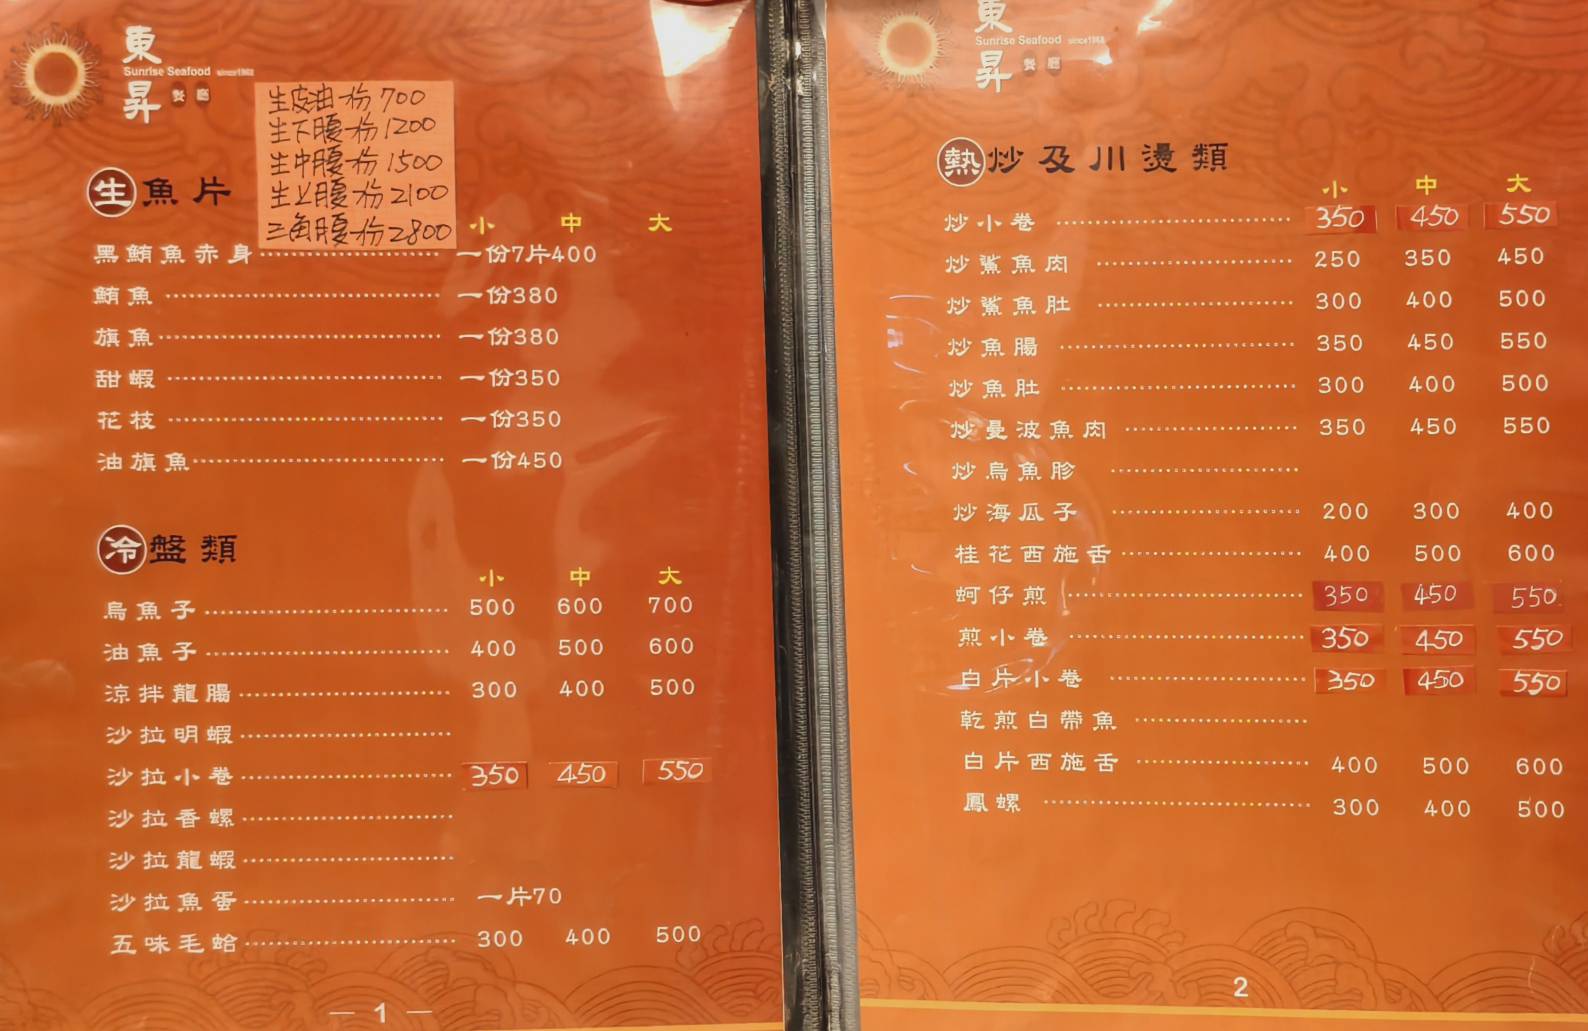 東昇
Sunrise Seafood since1968
餐廳
生皮油一份700
生下腹一份1200
生中腹一份1500
生上腹一份2100
三角腹一份2800
生魚片
小 中 大
黑鮪魚赤身 一份7片400
鮪魚 一份380
旗魚 一份380
甜蝦 一份350
花枝 一份350
油旗魚 一份450
冷盤類
小 中 大
烏魚子 500 600 700
油魚子 400 500 600
涼拌龍腸 300 400 500
沙拉明蝦
沙拉小卷 350 450 550
沙拉香螺
沙拉龍蝦
沙拉魚蛋 一片70
五味毛蛤 300 400 500
— 1 —
東昇
Sunrise Seafood since1968
餐廳
熱炒及川燙類
小 中 大
炒小卷 350 450 550
炒鯊魚肉 250 350 450
炒鯊魚肚 300 400 500
炒魚腸 350 450 550
炒魚肚 300 400 500
炒曼波魚肉 350 450 550
炒烏魚胗
炒海瓜子 200 300 400
桂花西施舌 400 500 600
蚵仔煎 350 450 550
煎小卷 350 450 550
白片小卷 350 450 550
乾煎白帶魚
白片西施舌 400 500 600
鳳螺 300 400 500
2